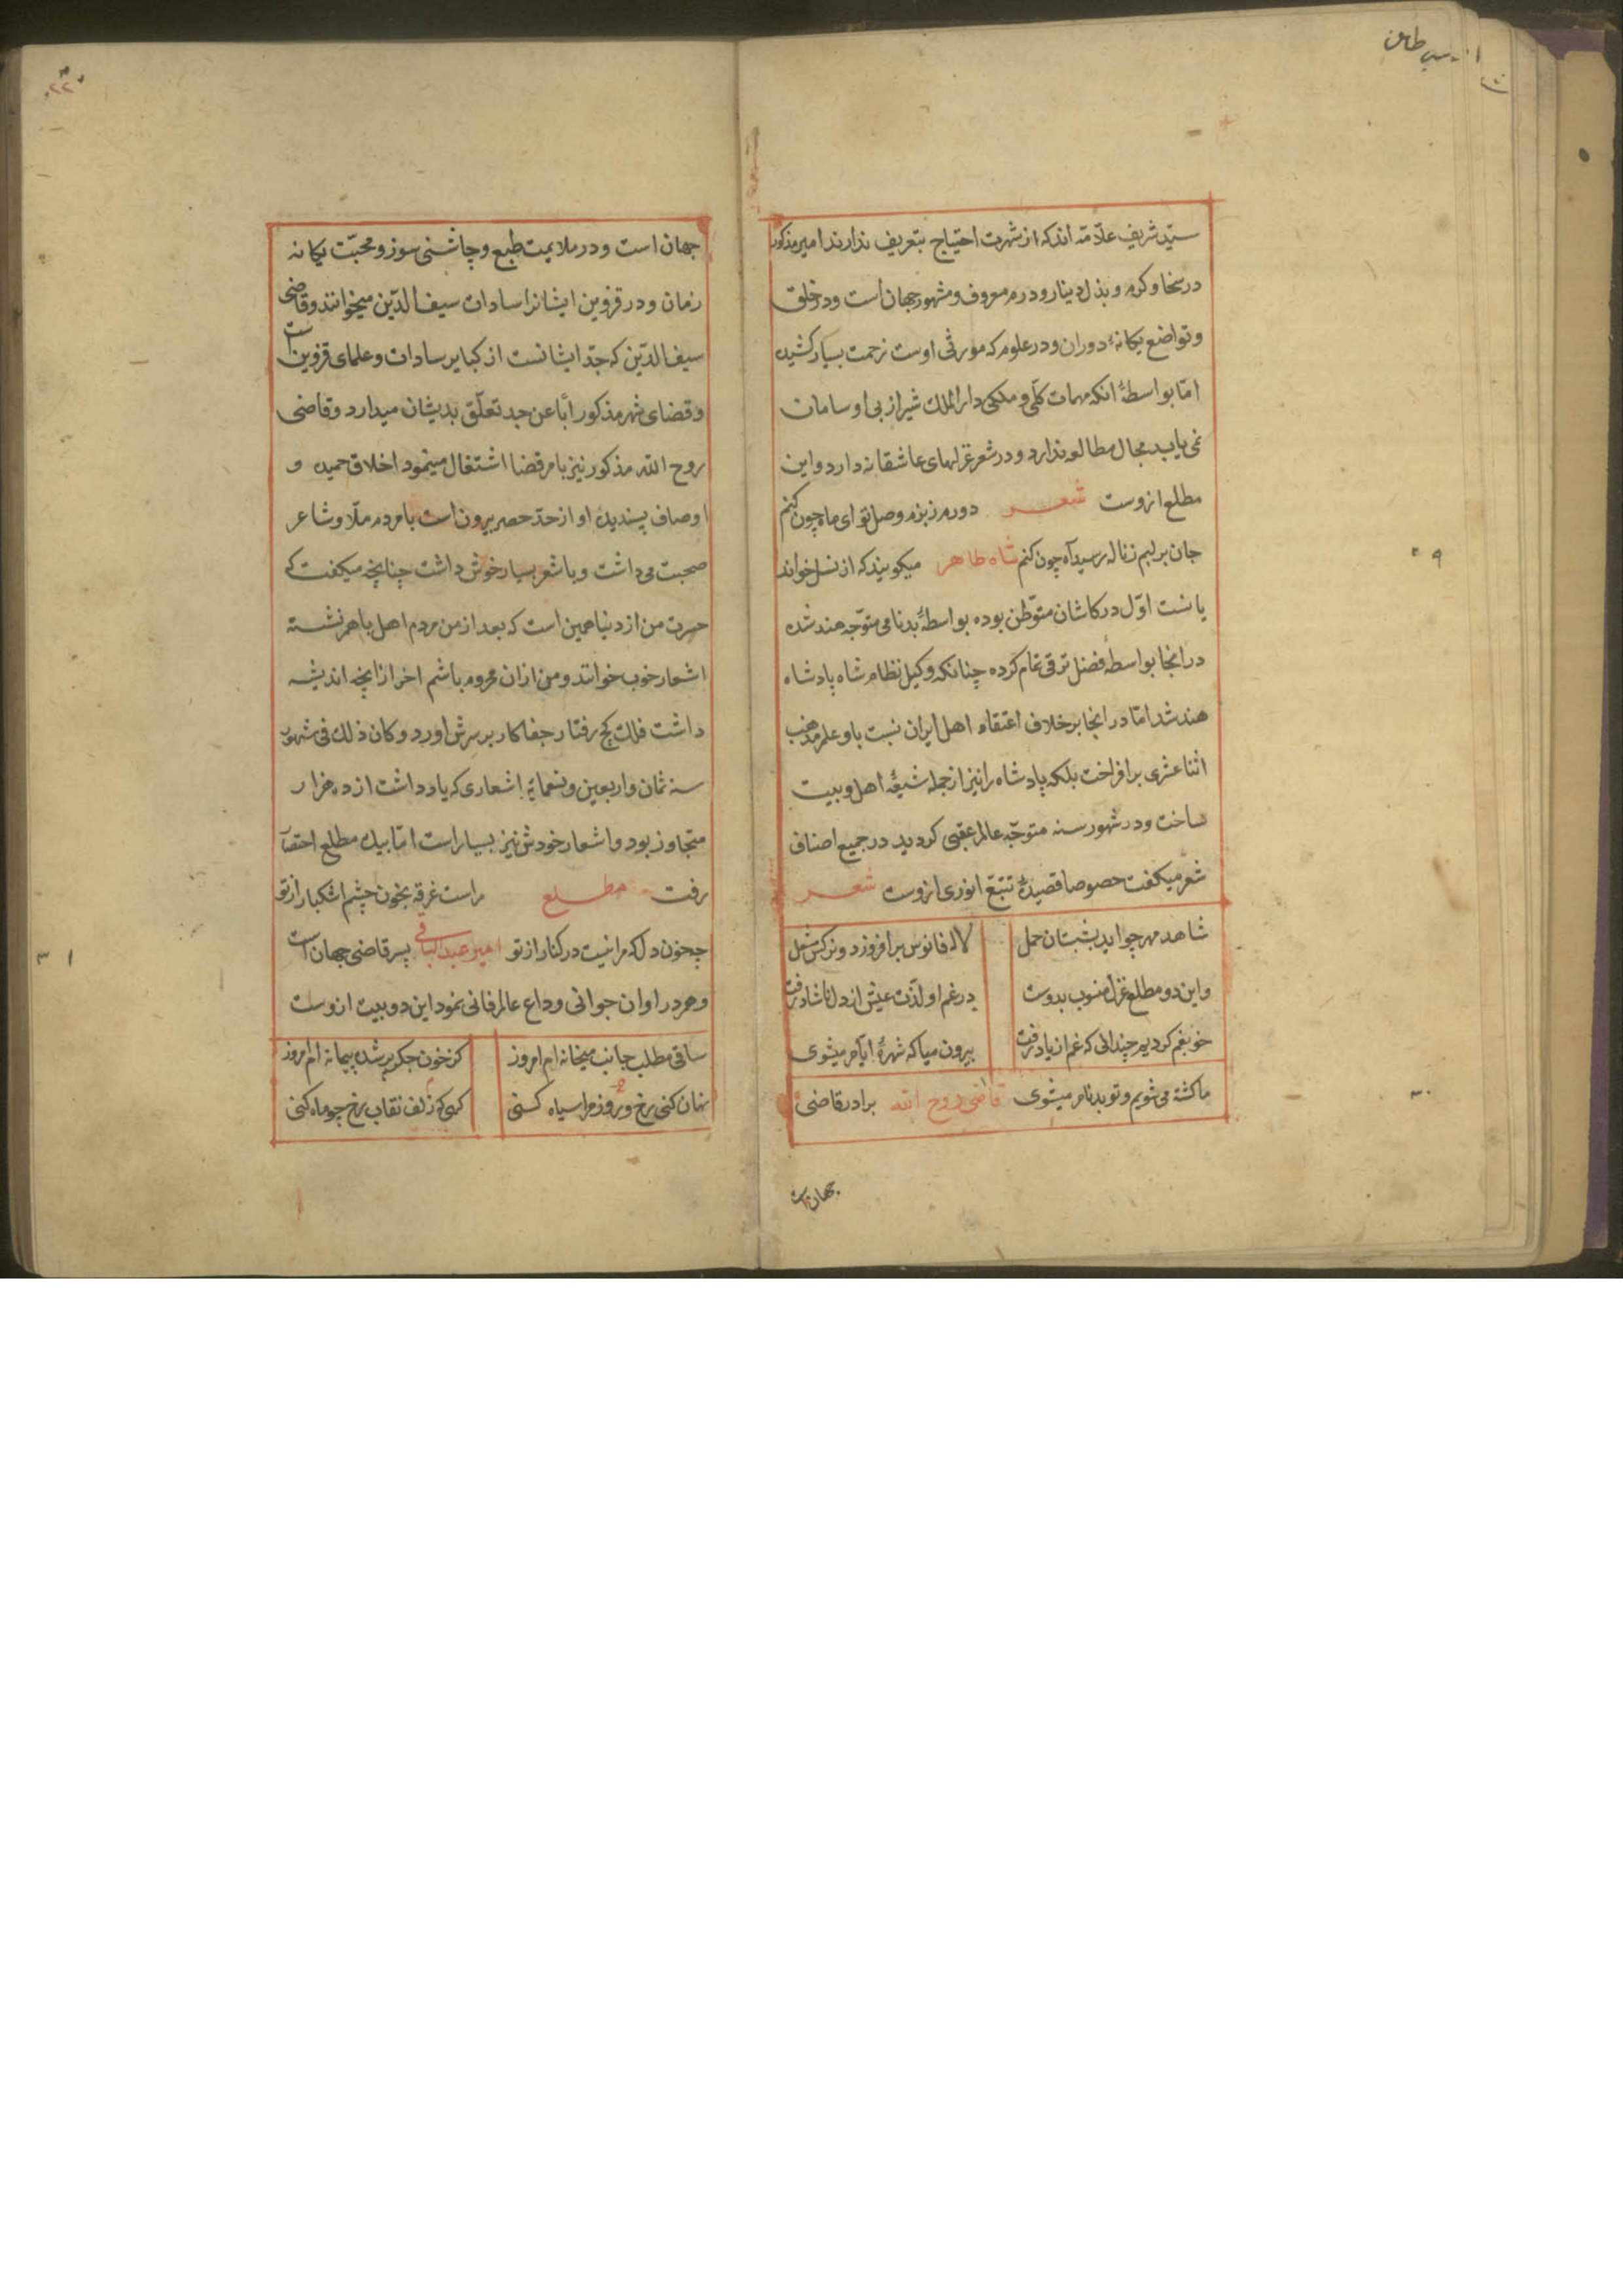 سیّد شریف علّامه اند که از شهرت احتیاج بتعریف ندارند امیر مذکور
در سخا و کرم و بذل دینار و درم معروف و مشهور جهان است و در خلق
و تواضع یکانهٔ دوران و در علوم که مورثی اوست زحمت بسیار کشیده
امّا بواسطهٔ انکه مهمات کلّی و ملکی دار الملک شیراز بی او سامان
نمی یابد مجال مطالعه ندارد و در شعر غزلهای عاشقانه دارد و این
مطلع ازوست شعر دورم ز بزم وصل تو ای ماه چون کنم
جان بر لبم ز ناله رسید آه چون کنم شاه طاهر میکویند که از نسل خواند
یا نست اوّل در کاشان متوّطن بوده بواسطهٔ بدنامی متوّجه هند شده
در انجا بواسطهٔ فضل ترقی تمام کرده چنانکه وکیل نظام شاه پادشاه
هند شد امّا در انجا بر خلاف اعتقاد اهل ایران نسبت باو علم مذهب
اثنا عشری بر افراخت بلکه پادشاه را نیز از جمله شیعهٔ اهل و بیت
ساخت و در شهور سنه متوجّه عالم عقبی کردید در جمیع اصناف
شعر میکفت خصوصا قصیدهٔ تتبّع انوری ازوست شعر
شاهد مهر چو اید بشبستان حمل لاله فانوس بر افروزد و نرکس مشعل
و این دو مطلع غزل منسوب بدوست در غم او لذّت عیش از دل ناشاد رفت
خو بغم کردیم چندانی که غم از یاد رفت بیرون میا که شهرهٔ ایّام میشوی
ما کشته می شویم و تو بدنام میشوی قاضی روح الله برادر قاضی
جهان است
جهان است و در ملایمت طبع و چاشنی سوز و محبّت یکانه
زمان و در قزوین ایشانرا سادات سیف الدّین میخوانند و قاضی
سیف الدّین که جدّ ایشانست از کبایر سادات و علمای قزوین است
و قضای شهر مذکور ابًا عن جد تعلّق بدیشان میدارد و قاضی
روح الله مذکور نیز بامر قضا اشتغال مینمود اخلاق حمیده و
اوصاف پسندیده او از حدّ حصر بیرون است با مردم ملّا و شاعر
صحبت می داشت و با شعر بسیار خوش داشت چنانچه میکفت که
حسرت من از دنیا همین است که بعد از من مردم اهل با هم نشسته
اشعار خوب خوانند و من ازان محروم باشم اخر ازانچه اندیشه
داشت فلک کج رفتار جفا کار بر سرش اورد و کان ذلک فی شهور
سنه ثمان و اربعین و تسعمایة اشعاری که یاد داشت از ده هزار
متجاوز بود و اشعار خودش نیز بسیار است امّا بیک مطلع اختصار
رفت مطلع مراست غرقه بخون چشم اشکبار از تو
چه خون دل که مرا نیست در کنار از تو امیر عبد الباقی پسر قاضی جهان است
و هم در اوان جوانی وداع عالم فانی نمود این دو بیت ازوست
ساقی مطلب جانب میخانه ام امروز کز خون جکر پر شده پیمانه ام امروز
نهان کنی رخ و روز مرا سیاه کنی کهی که زلف نقاب رخ چو ماه کنی